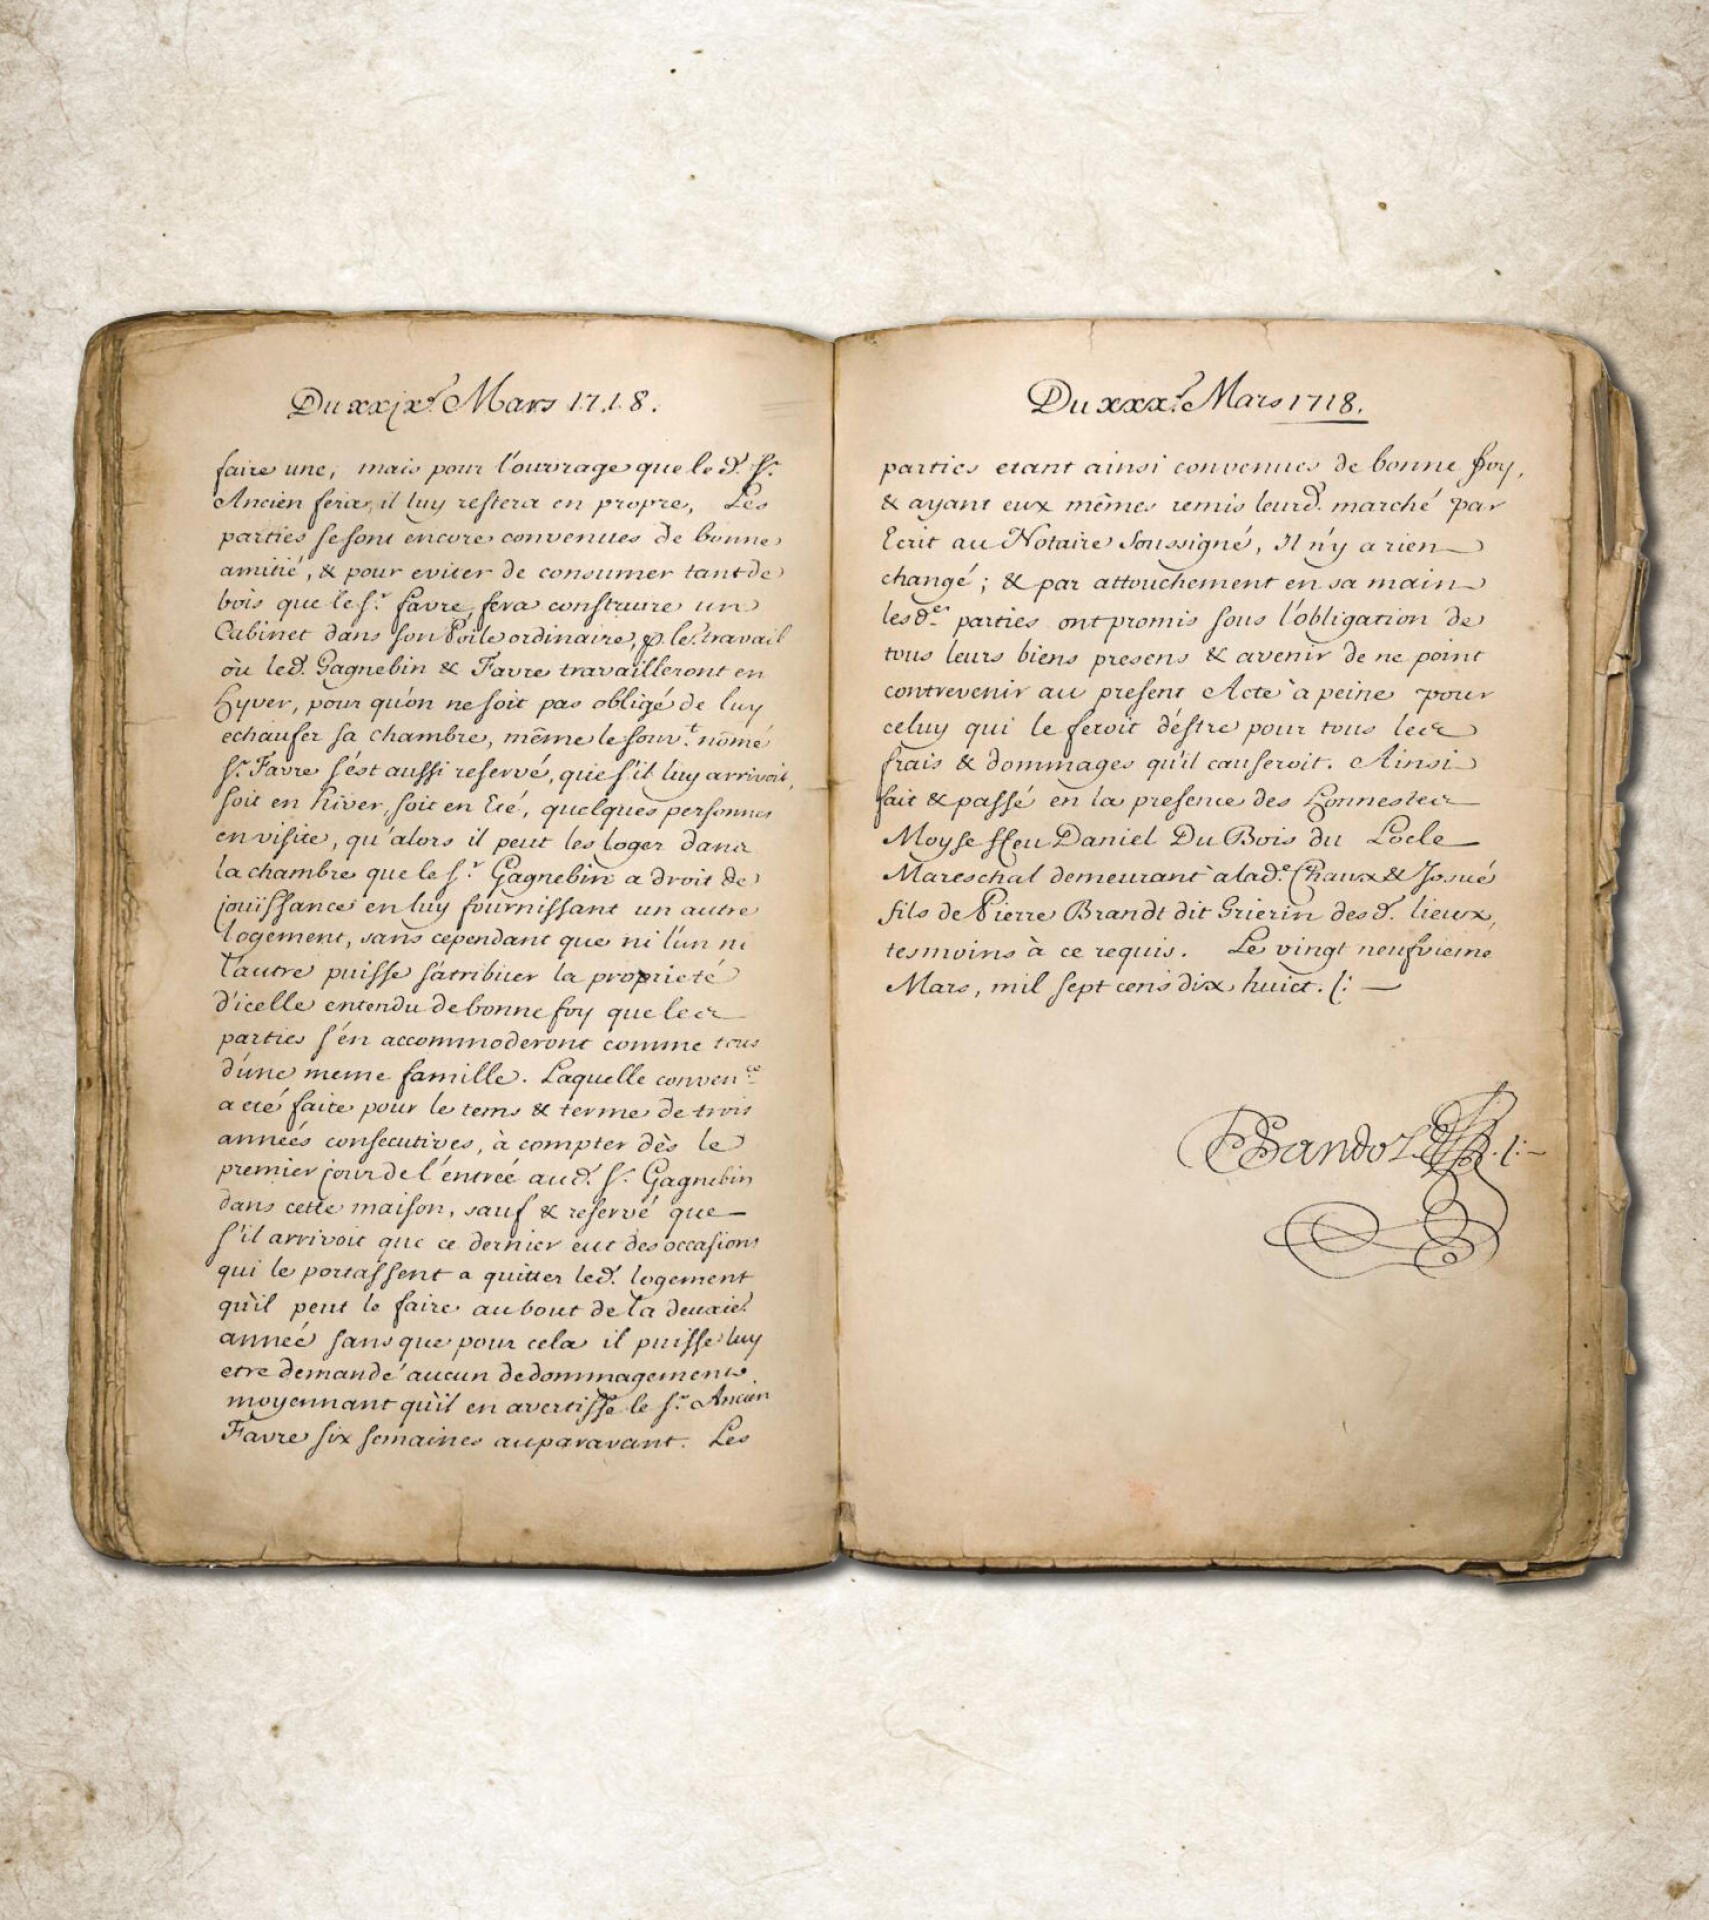 Du xxjxe. Mars 1.7.1.8.
faire une, mais pour l'ouvrage que le d. Sr.
Ancien fera, il luy restera en propre, Les
parties se sont encore convenues de bonne
amitié, & pour eviter de consumer tant de
bois que le Sr. Favre, fera construire un
Cabinet dans son Poile ordinaire, p. le travail
où led. Gagnebin & Favre travailleront en
Hyver, pour qu'on ne soit pas obligé de luy
echaufer sa chambre, même le souvt. nômé
Sr. Favre s'est aussi reservé, que s'il luy arrivoit,
soit en hiver, soit en Eté, quelques personnes
en visite, qu'alors il peut les loger dans
la chambre que le Sr. Gagnebin a droit de
jouissance en luy fournissant un autre
logement, sans cependant que ni l'un ni
l'autre puisse s'atribuer la proprieté
d'icelle entendu de bonne foy que les
parties s'en accommoderont comme tous
d'une meme famille. Laquelle convence
a eté faite pour le tems & terme de trois
années consecutives, à compter dès le
premier jour de l'entrée aud. Sr. Gagnebin
dans cette maison, sauf & reservé que
s'il arrivoit que ce dernier eut des occasions
qui le portassent a quitter led. logement
qu'il peut le faire au bout de la deuxie.
année sans que pour cela il puisse luy
etre demandé aucun dedommagements
moyennant qu'il en avertisse le Sr. Ancien
Favre six semaines auparavant. Les
Du xxx.e Mars 1718.
parties etant ainsi convenues de bonne foy,
& ayant eux mêmes remis leurd. marché par
Ecrit au Notaire Soussigné, Il n'y a rien
changé; & par attouchement en sa main
lesd.es parties ont promis sous l'obligation de
tous leurs biens presens & avenir de ne point
contrevenir au present Acte à peine pour
celuy qui le feroit d'estre pour tous les
frais & dommages qu'il causeroit. Ainsi
fait & passé en la presence des Honnestes
Moyse ffeu Daniel Du Bois du Locle
Mareschal demeurant à lad.e Chaux & Josué
fils de Pierre Brandt dit Grierin des d. lieux,
tesmoins à ce requis. Le vingt neufvieme
Mars, mil sept cens dix huict. /:
Sandoz